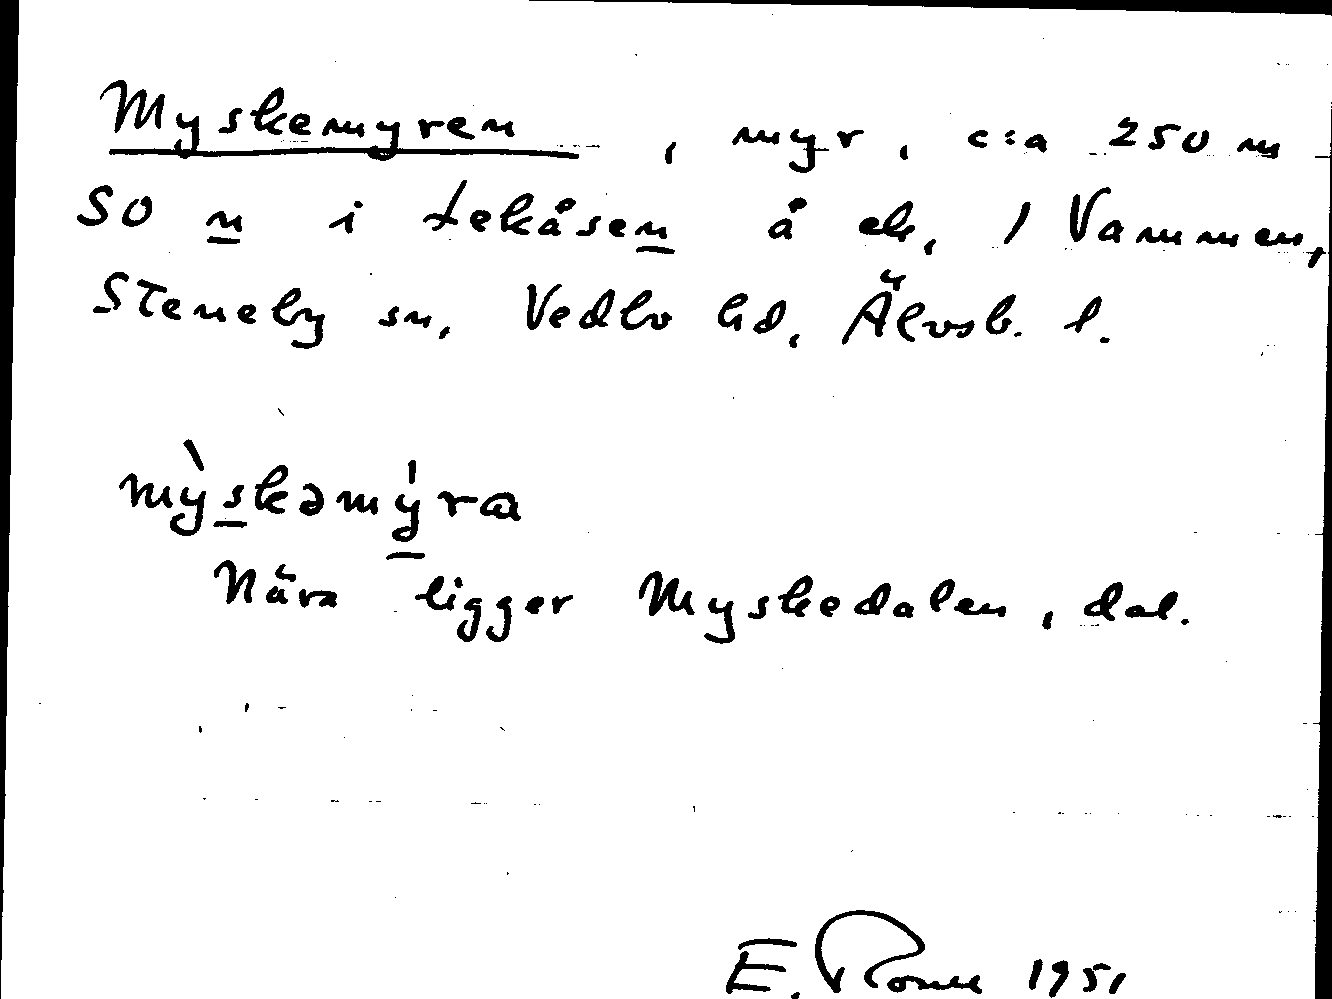 Myskemyren, myr, c:a 250 m
SO n i tekåsen å ek, 1 Vammen,
Steneby sn, Vedbo hd, Älvsb. l.
mỳskəmýra
Nära ligger Myskedalen, dal.
E. 1951